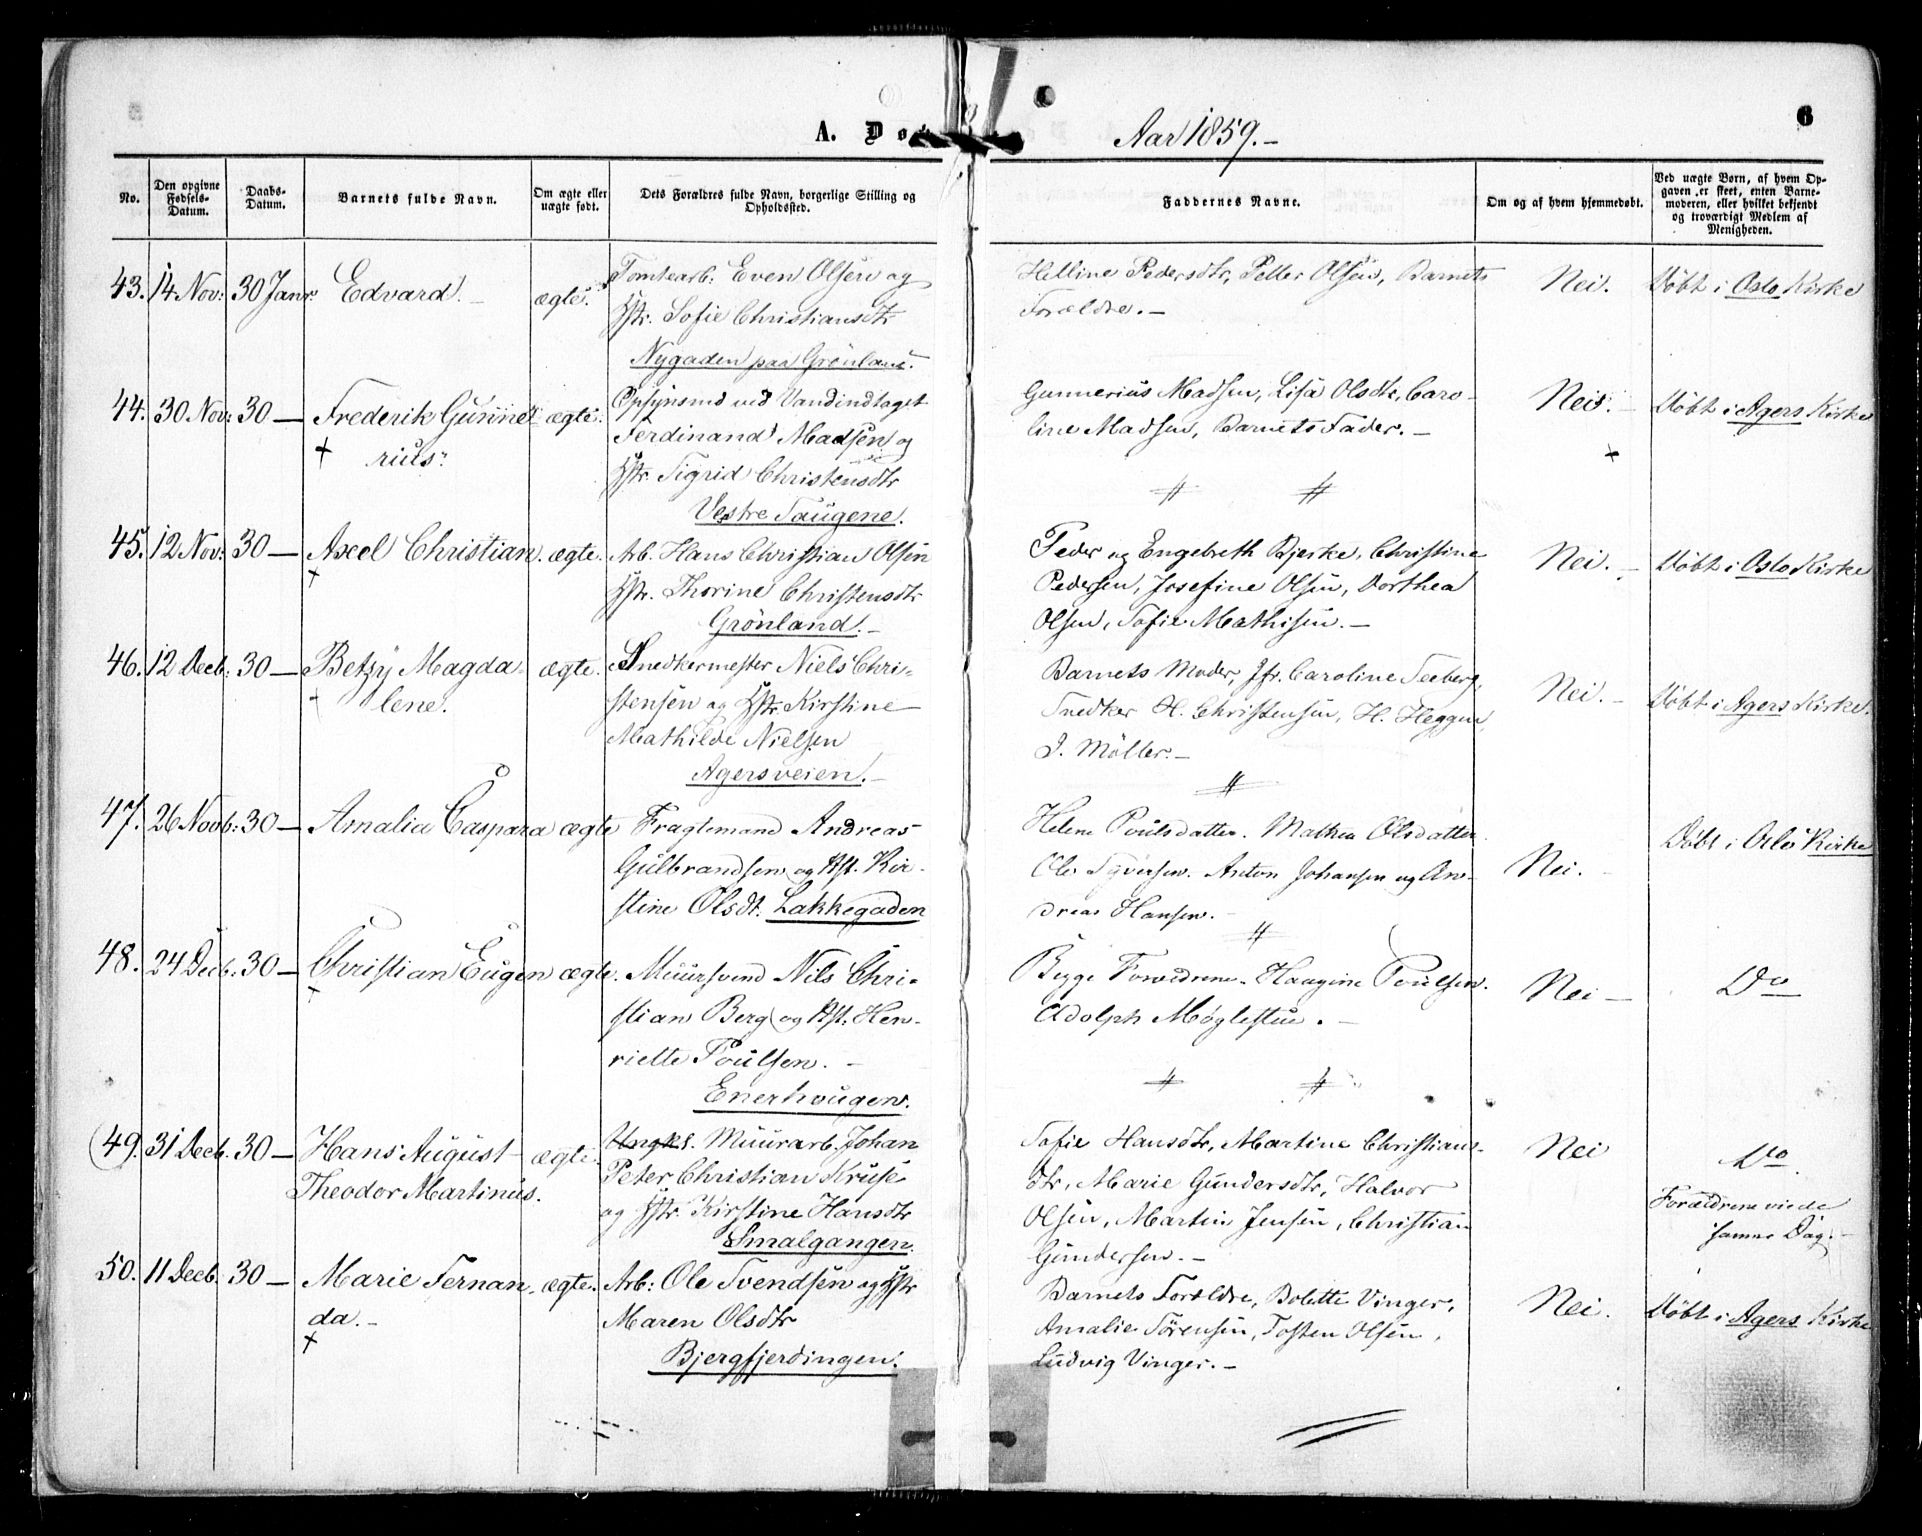 A. Dø
Aar 1859.-
6
No.
Den opgivne Fødsels-Datum.
Daabs-Datum.
Barnets fulde Navn.
Om ægte eller uægte født.
Dets Forældres fulde Navn, borgerlige Stilling og Opholdssted.
Faddernes Navne.
Om og af hvem hjemmedøbt.
Ved uægte Børn, af hvem Opgaven er skeet, enten Barnemoderen, eller hvilket bekjendt og troværdigt Medlem af Menigheden.
43. 14 Nov: 30 Janr. Edvard. - ægte.
Tomtearb: Even Olsen og
Hstr. Sofie Christiansdtr
Nygaden paa Grønland.
Helline Pedersdtr, Petter Olsen, Barnets
Forældre. -
Nei.
Døbt i Oslo Kirke
44. 30 Nov: 30 — Frederik Gunne- ægte.
+ rius.
Opsynsmd ved Vandindtaget
Ferdinand Madsen og
Hstr. Sigrid Christensdtr
Vestre Taugene.
Gunnerius Madsen, Lisa Olsdtr, Caro-
line Madsen, Barnets Fader. -
Nei.
Døbt i Agers Kirke
45. 12 Nov: 30 — Axel Christian. ægte.
+
Arb. Hans Christian Olsen
Hstr. Thorine Christensdtr
Grønland. -
Peder og Engebreth Bjerke, Christine
Pedersen, Josefine Olsen, Dorthea
Olsen, Sofie Mathisen. -
Nei. -
Døbt i Oslo Kirke
46. 12 Decb: 30 — Betzy Magda- ægte.
+ lene.
Snedkermester Niels Chri-
stensen og Hstr. Kirstine
Mathilde Nielsen
Agersveien. -
Barnets Moder, Jfr. Caroline Seeberg,
Snedker H. Christensen, H. Heggen,
J. Möller. -
Nei. -
Døbt i Agers Kirke.
47. 26 Novb: 30 — Amalia Caspara ægte
Fragtemand Andreas
Gulbrandsen og Hst. Kir-
stine Olsdt. Lakkegaden
Helene Poulsdatter. Mathea Olsdatter
Ole Syversen. Anton Johansen og An-
dreas Hansen. -
Nei. -
Døbt i Oslo Kirke
48. 24 Decb: 30 — Christian Eugen ægte.
+
Muursvend Nils Chri-
stian Berg og Hst: Hen-
riette Poulsen. -
Enerhougen.
Begge Forældrene. Haagine Poulsen.
Adolph Møglestue. -
Nei —
Do
49. 31 Decb. 30 — Hans August ægte.
Theodor Martinus.
Ungk. Muurarb. Johan
Peter Christian Kruse
og Hstr. Kirstine Hansdtr
Smalgangen.
Sofie Hansdtr, Martine Christians-
dtr, Marie Gundersdtr, Halvor
Olsen, Martin Jensen, Christian
Gundersen. -
Nei
Do.
Forældrene viede
samme Dag. -
50. 11 Decb. 30 — Marie Fernan- ægte.
da. -
+
Arb: Ole Svendsen og Hstr
Maren Olsdtr
Bjergfjerdingen.
Barnets Forældre, Bolette Vinger,
Amalie Sørensen, Tosten Olsen,
Ludvig Vinger. -
Nei.
Døbt i Agers Kirke